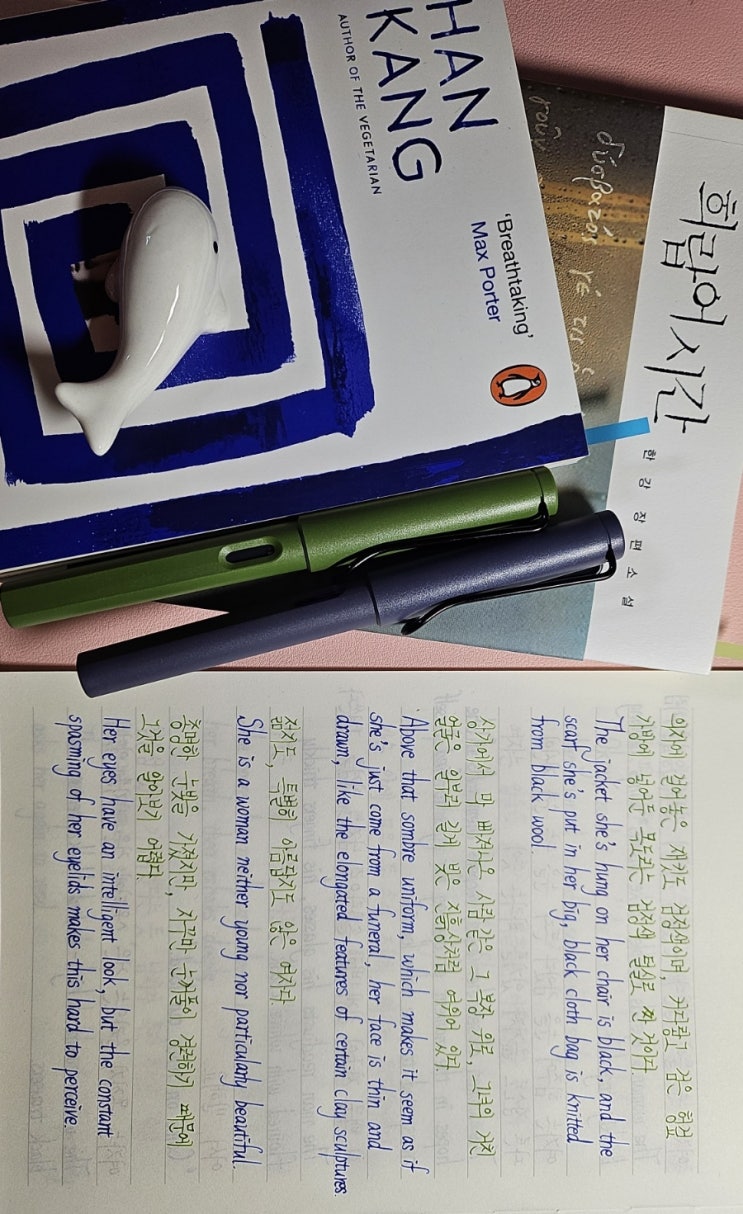 HAN
KANG
AUTHOR OF THE VEGETARIAN
'Breathtaking'
Max Porter
희랍어 시간
한강 장편소설
의자에 걸어놓은 재킷도 검정색이며, 커다랗고 검은 헝겊
가방에 넣어둔 목도리는 검정색 털실로 짠 것이다.
The jacket she's hung on her chair is black, and the
scarf she's put in her big, black cloth bag is knitted
from black wool.
상가에서 막 빠져나온 사람 같은 그 복장 위로, 그녀의 거친
얼굴은 일부러 길게 빚은 진흙상처럼 여위어 있다.
Above that sombre uniform, which makes it seem as if
she's just come from a funeral, her face is thin and
drawn, like the elongated features of certain clay sculptures.
젊지도, 특별히 아름답지도 않은 여자다.
She is a woman neither young nor particularly beautiful.
총명한 눈빛을 가졌지만, 자꾸만 눈꺼풀이 경련하기 때문에
그것을 알아보기 어렵다.
Her eyes have an intelligent look, but the constant
spasming of her eyelids makes this hard to perceive.